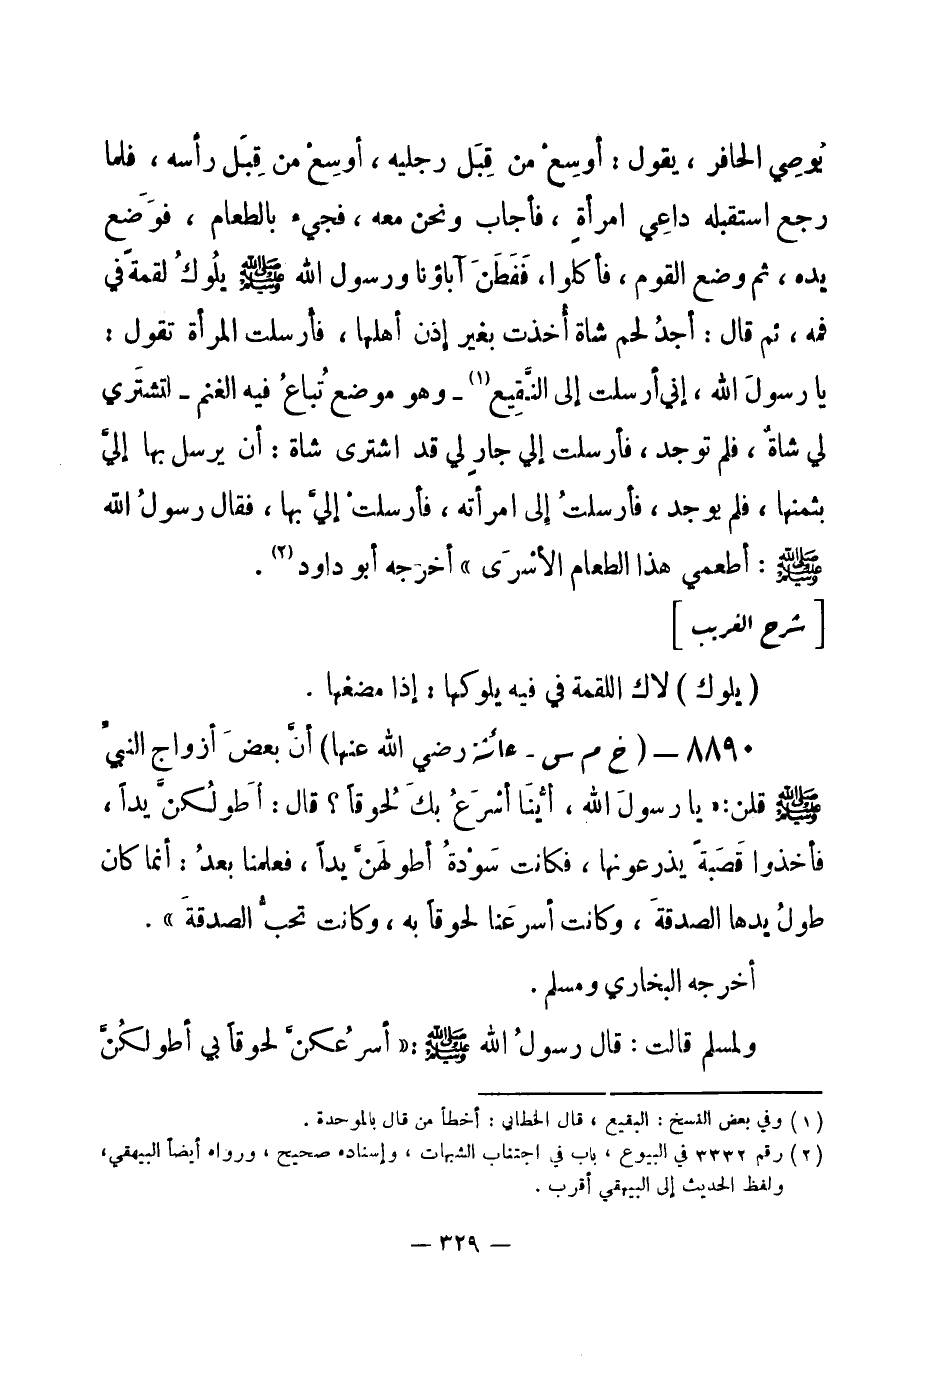 يُوصِي الحافر ، يقول : أوسِعْ من قِبَل رجليه ، أوسِعْ من قِبَل رأسه ، فلما
رجع استقبله داعِي امرأةٍ ، فأجاب ونحن معه ، فجيء بالطعام ، فوَضع
يده ، ثم وضع القوم ، فأكلوا، فَفَطَنَ آباؤنا ورسول الله ﷺ يلُوكُ لقمةً في
فمه ، ثم قال : أجدُ لحم شاة أُخذت بغير إذن أهلها ، فأرسلت المرأة تقول :
يا رسولَ الله ، إني أرسلت إلى النَّقِيع(١) ـ وهو موضع تُباعُ فيه الغنم ـ لتشتَري
لي شاةٌ ، فلم توجد ، فأرسلت إلي جارٍ لي قد اشترى شاة : أن يرسل بها إليَّ
بثمنها ، فلم يوجد ، فأرسلتُ إلى امرأته ، فأرسلتْ إليَّ بها ، فقال رسولُ الله
ﷺ : أطعمي هذا الطعام الأسْرَى » أخرجه أبو داود(٢) .
[ شرح الغريب ]
( يلوك ) لاك اللقمة في فيه يلوكها : إذا مضغها .
٨٨٩٠ ـ ( خ م س ـ عائشة رضي الله عنها) أنَّ بعضَ أزواج النبيِّ
ﷺ قلن:« يا رسولَ الله ، أيُّنَا أسْرَعُ بكَ لُحوقاً ؟ قال : أطولُكنَّ يداً ،
فأخذوا قَصَبَةً يذرعونها ، فكانت سَوْدَةُ أطولهَنَّ يداً ، فعلمنا بعدُ : أنما كان
طولُ يدها الصدقةَ ، وكانت أسرعَنا لحوقاً به ، وكانت تحبُّ الصدقةَ » .
أخرجه البخاري ومسلم .
ولمسلم قالت : قال رسولُ الله ﷺ :« أسرعُكنَّ لحوقاً بي أطولكُنَّ
(١) وفي بعض النسخ : البقيع ، قال الخطابي : أخطأ من قال بالموحدة .
(٢) رقم ٣٣٣٢ في البيوع ، باب في اجتناب الشبهات ، وإسناده صحيح ، ورواه أيضاً البيهقي،
ولفظ الحديث إلى البيهقي أقرب .
ـ ٣٢٩ ـ